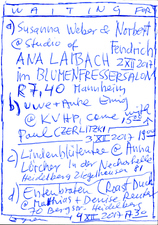 WAITING FOR
a) Susanna Weber & Norbert
@ Studio of Fendrich
ANA LAIBACH 2 XII 2017
im BLUMENFRESSERSALON
R7,40 Mannheim
b) Uwe + Anke
@ KVHP, come
Paul CZERLITZKI
3 XII 2017
c) Lindenblütenfee @ Anna
Lörcher in der Neckarhelle
Heidelberg Ziegelhausen
d) Entenbraten (Roast Duck
@ Matthias + Denise
70 Bergstr. Heidelberg
9 XII 2017